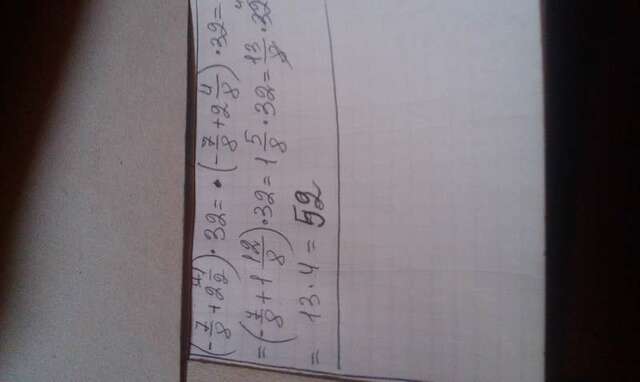 (-7/8 + 2 1/2 ⁴⁾) · 32 = · (-7/8 + 2 4/8) · 32 =
= (-7/8 + 1 12/8) · 32 = 1 5/8 · 32 = 13/8 · 32
= 13 · 4 = 52